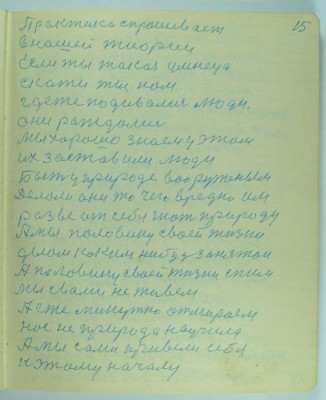 15
Практика спрашивает
в нашей тиории
Если ты такая умнеца
скажи ты нам
где те подивались люди.
они раждались
мы хорошо знаем у этом
их заставили люди
Быть у природе вооруженым
Делали они то чего вредно им
разве от себя гнат природу
А мы половину своей жизни
делом каким нибудь занятои
А половину своей жизни спим
мы с вами не живем
А сте минутно отмираем
нас не природа научила
А мы сами приучили себя
к этому началу